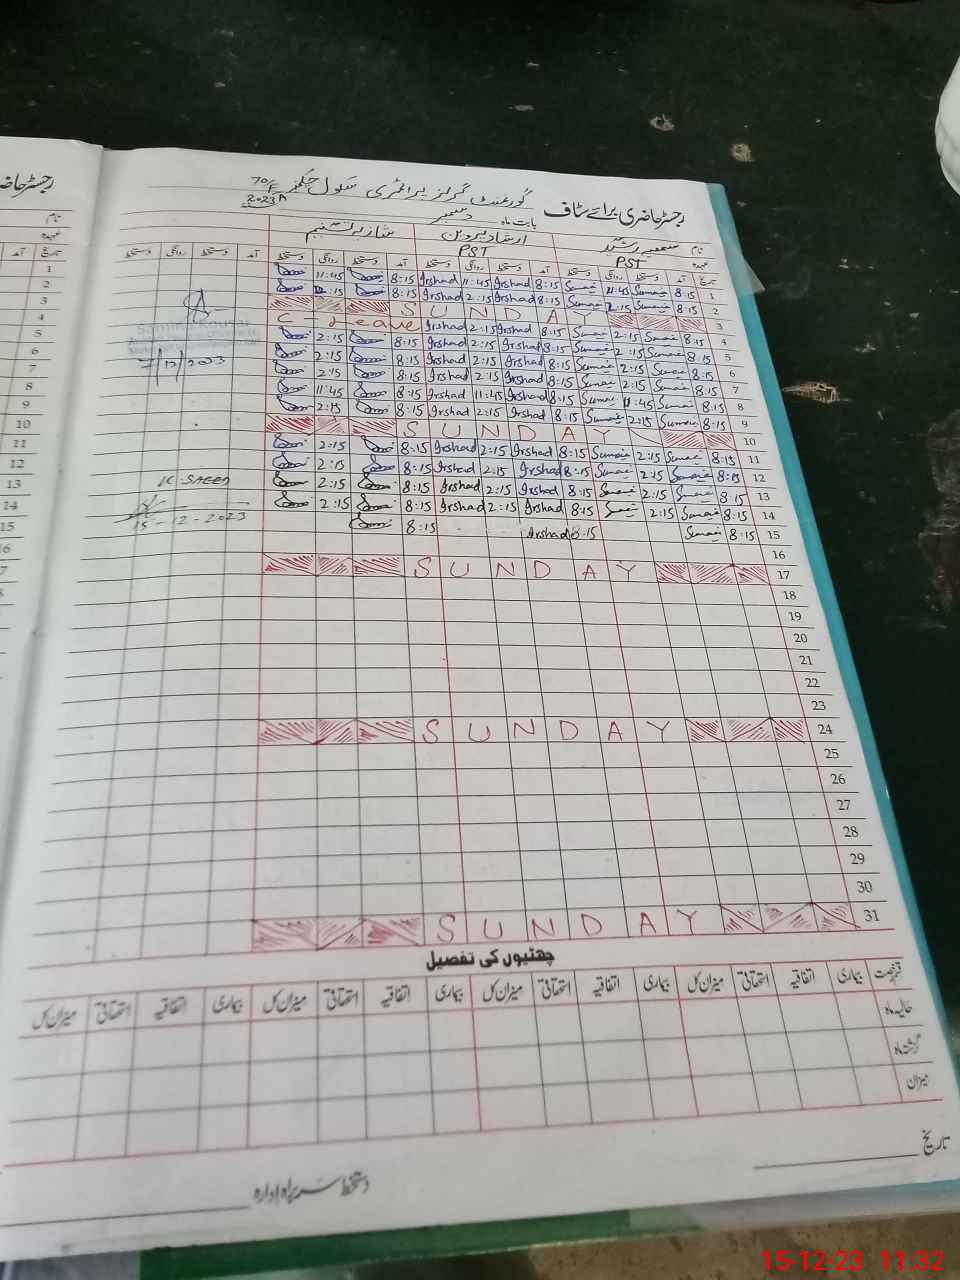 رجسٹر حاضری برائے سٹاف
گورنمنٹ گرلز پرائمری سکول
بابت ماہ دسمبر 2023
نام سمعیہ رشید ارشاد پروین شازیہ تسنیم
عہدہ PST PST
تاریخ آمد دستخط روانگی دستخط آمد دستخط روانگی دستخط آمد دستخط روانگی دستخط آمد دستخط روانگی دستخط
1 8:15 Sumaia 11:45 Sumaia 8:15 Irshad 11:45 Irshad 8:15 11:45
2 8:15 Sumaia 2:15 Sumaia 8:15 Irshad 2:15 Irshad 8:15 2:15
3 SUNDAY
4 8:15 Sumaia 2:15 Sumaia 8:15 Irshad 2:15 Irshad C-Leave
5 8:15 Sumaia 2:15 Sumaia 8:15 Irshad 2:15 Irshad 8:15 2:15
6 8:15 Sumaia 2:15 Sumaia 8:15 Irshad 2:15 Irshad 8:15 2:15
7 8:15 Sumaia 2:15 Sumaia 8:15 Irshad 2:15 Irshad 8:15 2:15
8 8:15 Sumaia 11:45 Sumaia 8:15 Irshad 11:45 Irshad 8:15 11:45
9 8:15 Sumaia 2:15 Sumaia 8:15 Irshad 2:15 Irshad 8:15 2:15
10 SUNDAY
11 8:15 Sumaia 2:15 Sumaia 8:15 Irshad 2:15 Irshad 8:15 2:15
12 8:15 Sumaia 2:15 Sumaia 8:15 Irshad 2:15 Irshad 8:15 2:15
13 8:15 Sumaia 2:15 Sumaia 8:15 Irshad 2:15 Irshad 8:15 2:15
14 8:15 Sumaia 2:15 Sumaia 8:15 Irshad 2:15 Irshad 8:15 2:15
15 8:15 Sumaia 8:15 Irshad 8:15
16
17 SUNDAY
18
19
20
21
22
23
24 SUNDAY
25
26
27
28
29
30
31 SUNDAY
Samina Kousar
7/12/2023
K SAEED
15-12-2023
چھٹیوں کی تفصیل
قسم رخصت بیماری اتفاقیہ استحقاقی میزان کل بیماری اتفاقیہ استحقاقی میزان کل بیماری اتفاقیہ استحقاقی میزان کل بیماری اتفاقیہ استحقاقی میزان کل
حالیہ ماہ
گزشتہ ماہ
میزان
تاریخ
دستخط سربراہ ادارہ
رجسٹر حاضری
نام
عہدہ
تاریخ آمد
1
2
3
4
5
6
7
8
9
10
11
12
13
14
15
16
15-12-23 11:32